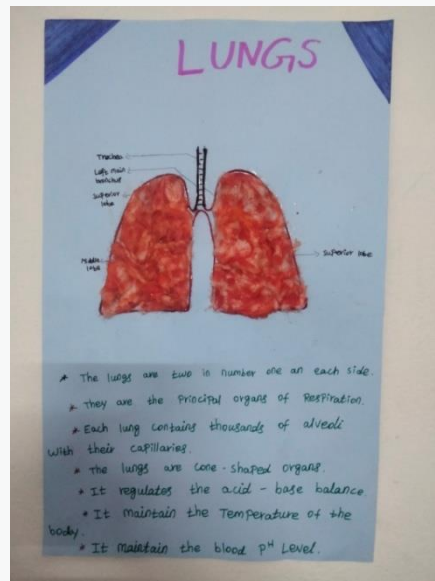 LUNGS
Trachea
Left main
bronchus
Superior
lobe
Middle
lobe
Superior lobe
* The lungs are two in number one an each side.
* They are the Principal organs of Respiration.
* Each lung contains thousands of alveoli
with their capillaries.
* The lungs are cone-shaped organs.
* It regulates the acid - base balance.
* It maintain the Temperature of the
body.
* It maintain the blood pH Level.